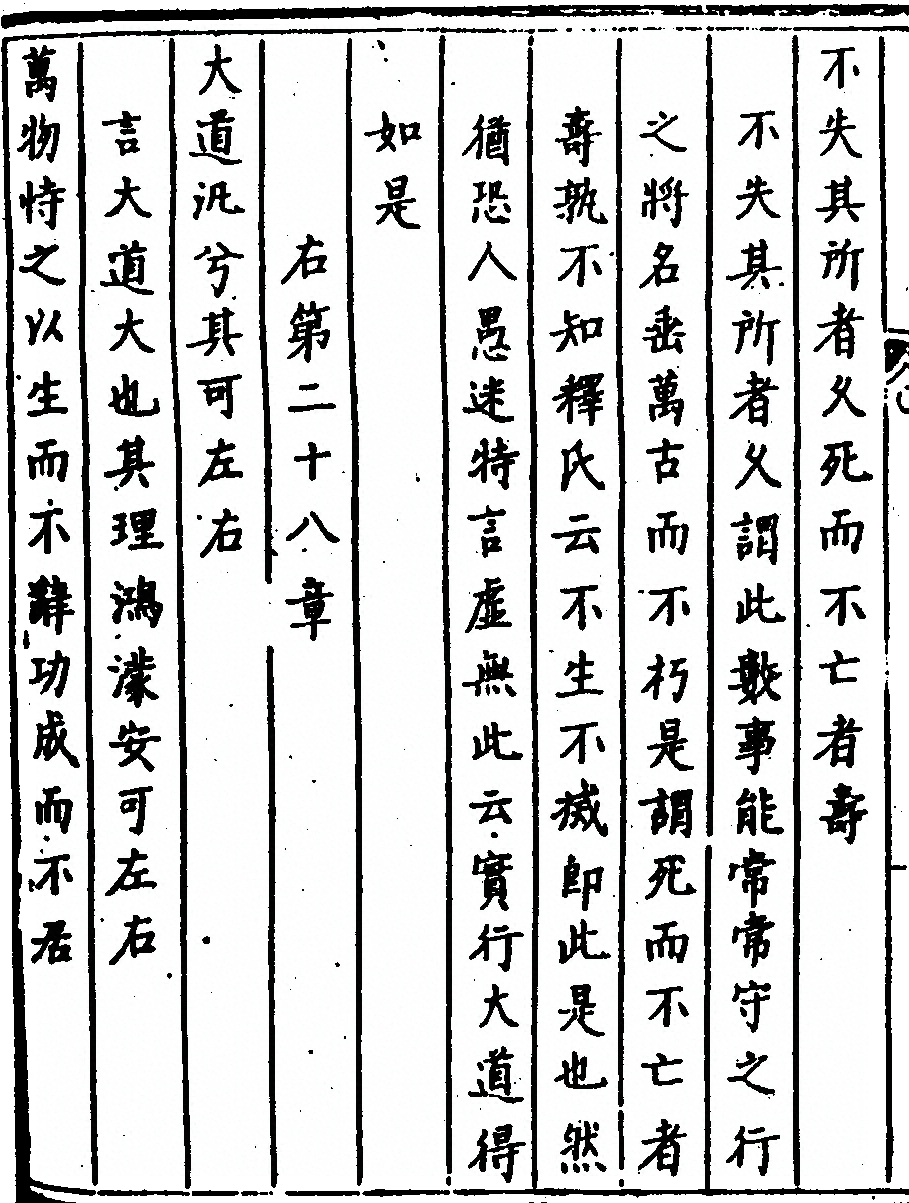 不失其所者乆死而不亡者壽
不失其所者乆謂此數事能常常守之行
之將名垂萬古而不朽是謂死而不亡者
壽孰不知釋氏云不生不㓕即此是也然
猶恐人愚迷特言虛無此云實行大道得
如是
右第二十八章
大道汎兮其可左右
言大道大也其理鴻濛安可左右
萬物恃之以生而不辭功成而不居